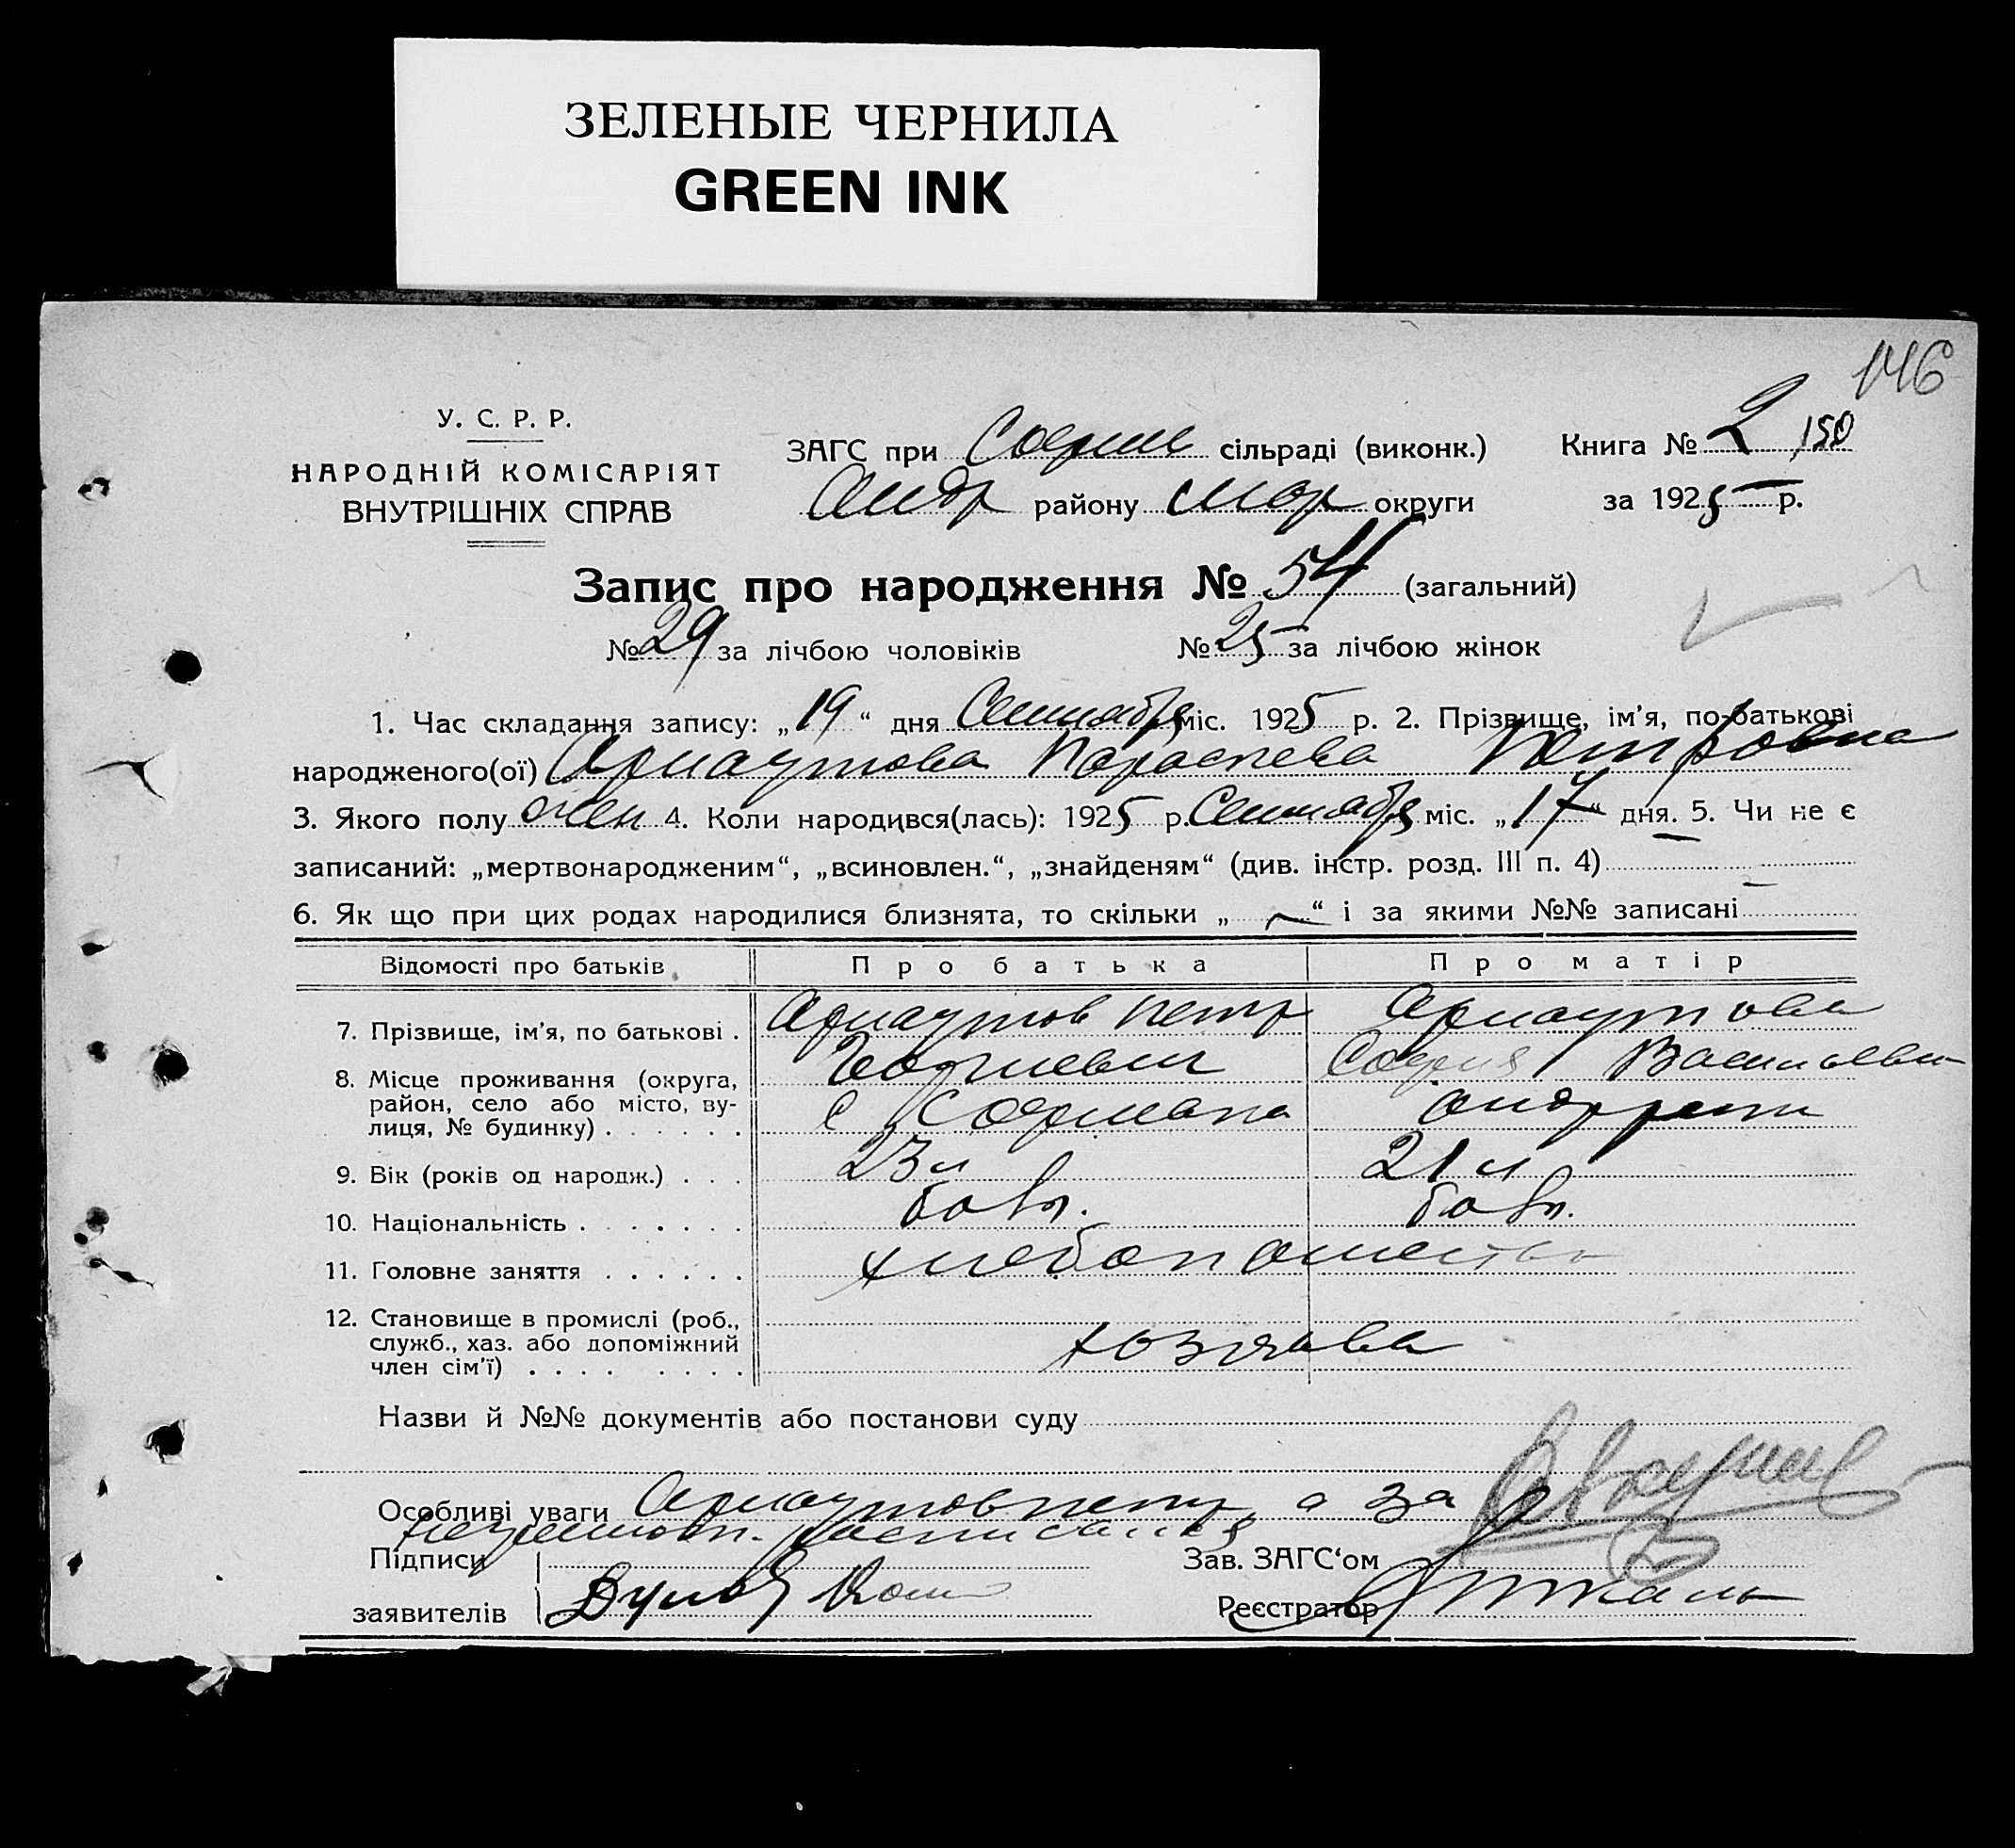 ЗЕЛЕНЫЕ ЧЕРНИЛА
GREEN INK
146
У. С. Р. Р.
НАРОДНІЙ КОМІСАРІЯТ
ВНУТРІШНІХ СПРАВ
ЗАГС при Софие сільраді (виконк.) Книга № 2 150
Андр району Мар округи за 1925 р.
Запис про народження № 54 (загальний)
№ 29 за лічбою чоловіків № 25 за лічбою жінок
1. Час складання запису: „19“ дня Сентабря міс. 1925 р. 2. Прізвище, ім’я, по-батькові
народженого(ої) Арнаутова Парасева Петровна
3. Якого полу жен 4. Коли народився(лась): 1925 р. Сентабря міс. „17“ дня. 5. Чи не є
записаний: „мертвонародженим“, „всиновлен.“, „знайденям“ (див. інстр. розд. III п. 4)
6. Як що при цих родах народилися близнята, то скільки „ — “ і за якими №№ записані
Відомості про батьків Про батька Про матір
7. Прізвище, ім’я, по батькові . Арнаутов Петр Арнаутова
Георгиевич София Васильевн
8. Місце проживання (округа, район, село або місто, вулиця, № будинку) . . . . . . с Софиевка
9. Вік (років од народж.) . . . 23 л 21 л
10. Національність . . . . . . . болг. болг.
11. Головне заняття . . . . . . хлебопашество
12. Становище в промислі (роб., служб., хаз. або допоміжний член сім’ї) . . . . . . . . хозяева
Назви й №№ документів або постанови суду
Особливі уваги Арнаутов Петр а за
неграмотн. росписался
Підписи
заявителів
Зав. ЗАГС‘ом
Реєстратор